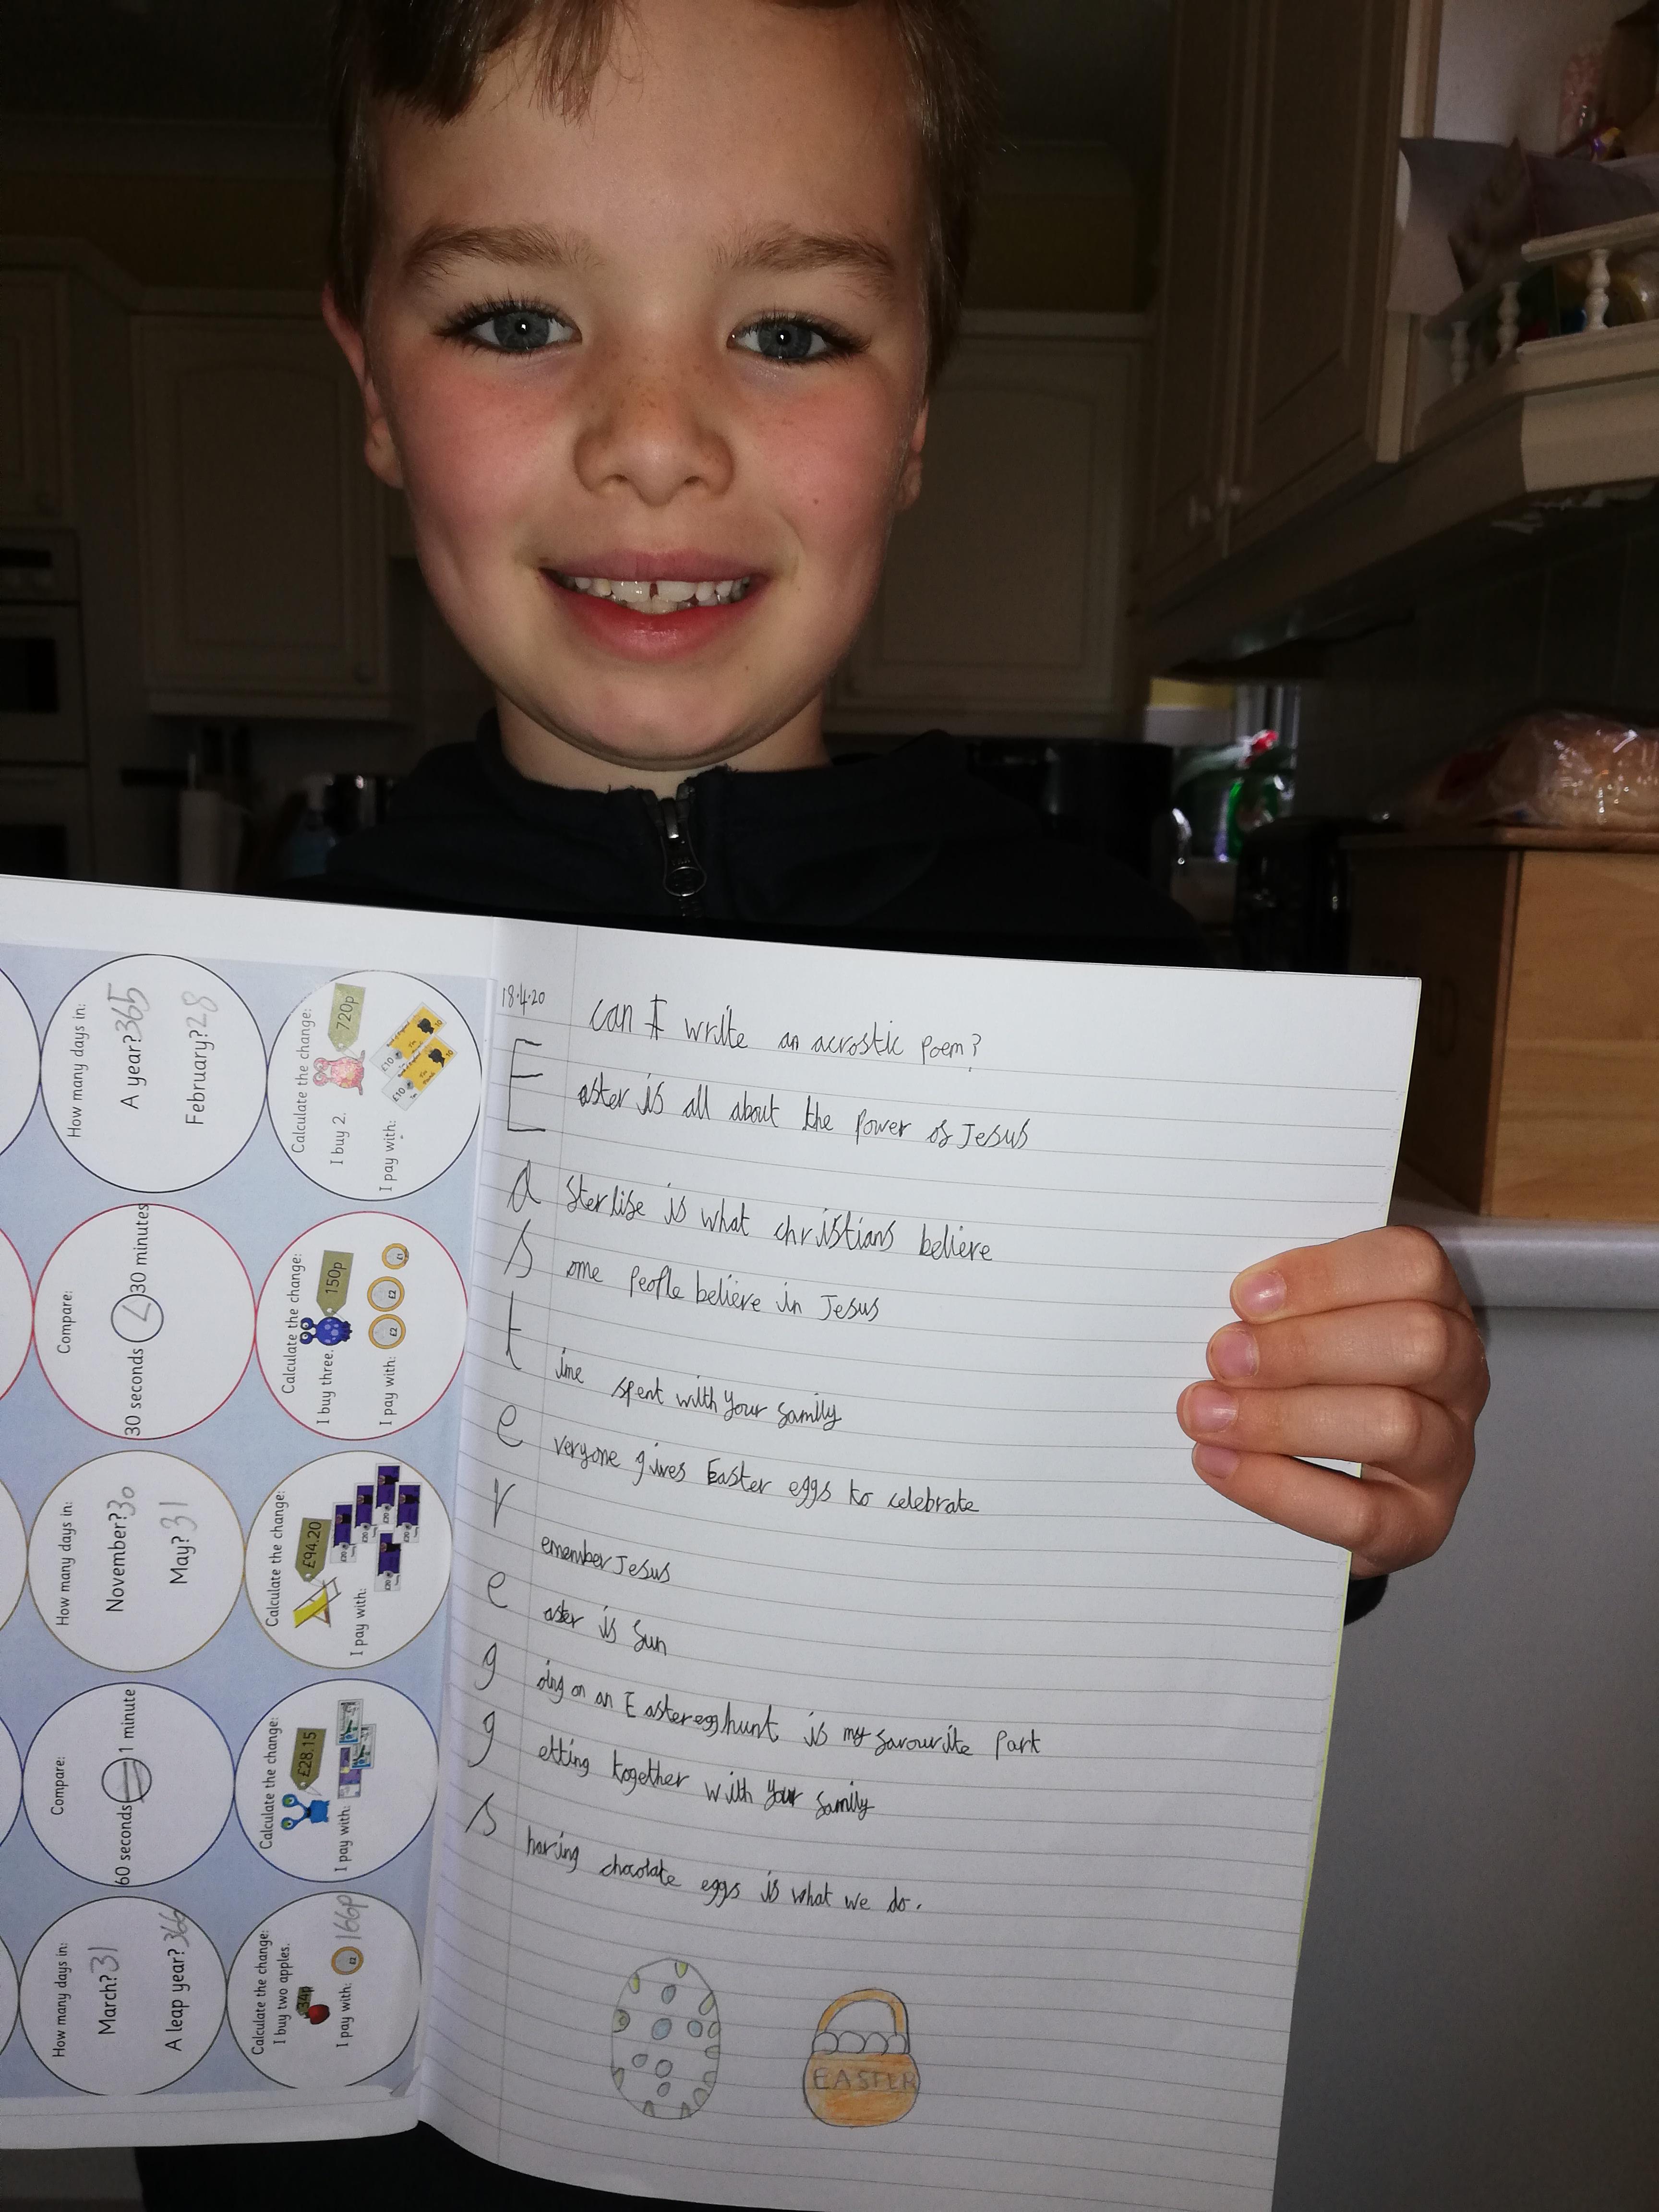 How many days in:
A year? 365
February? 28
Calculate the change:
720p
I buy 2.
I pay with:
£10
£10
Compare:
30 seconds < 30 minutes
Calculate the change:
150p
I buy three.
I pay with:
£2
£2
£1
How many days in:
November? 30
May? 31
Calculate the change:
£94.20
I pay with:
Compare:
60 seconds = 1 minute
Calculate the change:
£28.15
I pay with:
How many days in:
March? 31
A leap year? 366
Calculate the change:
I buy two apples.
34p
I pay with:
£2
166p
18.4.20
can I write an acrostic poem?
Easter is all about the power of Jesus
aster life is what christians believe
some people believe in Jesus
time spent with your family
everyone gives Easter eggs to celebrate
remember Jesus
easter is fun
going on an Easter egg hunt is my favourite part
getting together with your family
sharing chocolate eggs is what we do.
EASTER